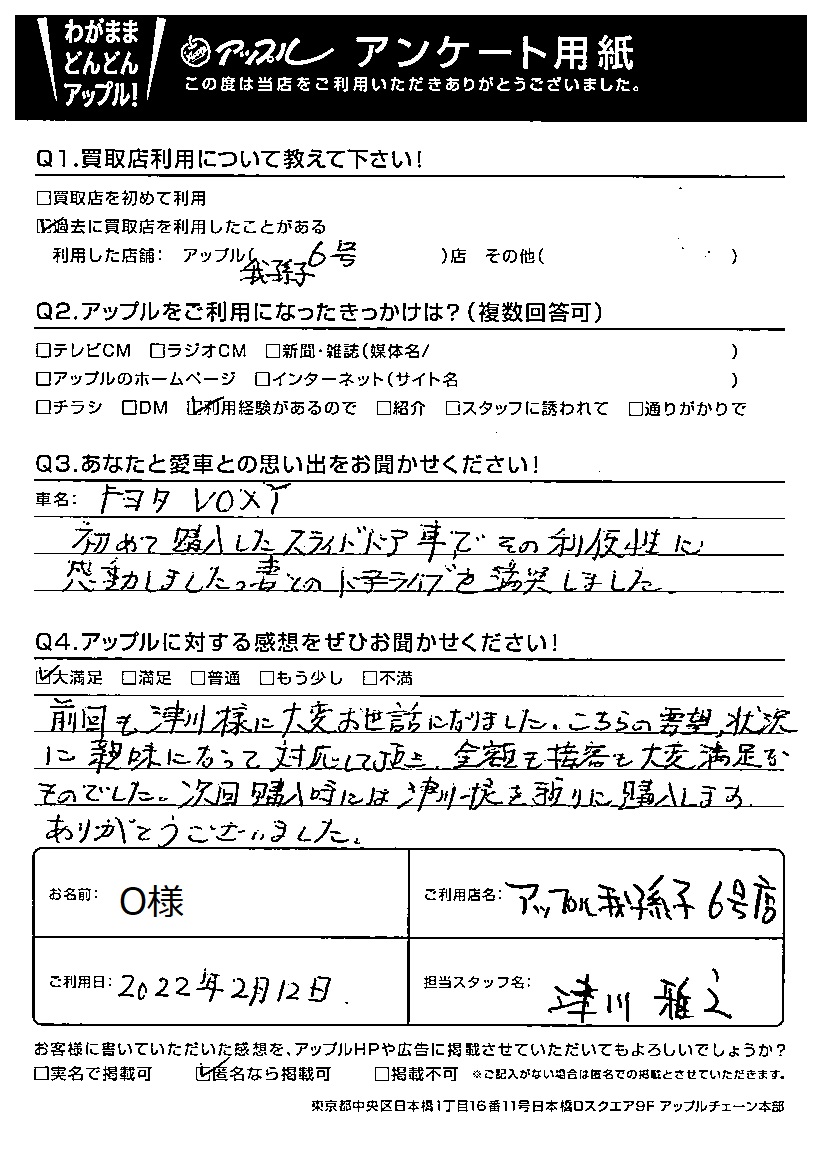 わがまま
どんどん
アップル!
アップル アンケート用紙
この度は当店をご利用いただきありがとうございました。
Q1.買取店利用について教えて下さい!
□買取店を初めて利用
☑過去に買取店を利用したことがある
利用した店舗: アップル(我孫子6号)店 その他( )
Q2.アップルをご利用になったきっかけは?(複数回答可)
□テレビCM □ラジオCM □新聞・雑誌(媒体名/ )
□アップルのホームページ □インターネット(サイト名 )
□チラシ □DM ☑利用経験があるので □紹介 □スタッフに誘われて □通りがかりで
Q3.あなたと愛車との思い出をお聞かせください!
車名: トヨタ VOXY
初めて購入したスライドドア車でその利便性に
感動しました。妻とのドライブを満喫しました
Q4.アップルに対する感想をぜひお聞かせください!
☑大満足 □満足 □普通 □もう少し □不満
前回も津川様に大変お世話になりました。こちらの要望、状況
に親味になって対応して頂き、金額も接客も大変満足な
ものでした。次回購入時には津川様を頼りに購入します。
ありがとうございました。
お名前: O様
ご利用店名: アップル我孫子6号店
ご利用日: 2022年2月12日
担当スタッフ名: 津川 雅之
お客様に書いていただいた感想を、アップルHPや広告に掲載させていただいてもよろしいでしょうか?
□実名で掲載可 ☑匿名なら掲載可 □掲載不可 ※ご記入がない場合は匿名での掲載とさせていただきます。
東京都中央区日本橋1丁目16番11号日本橋Dスクエア9F アップルチェーン本部